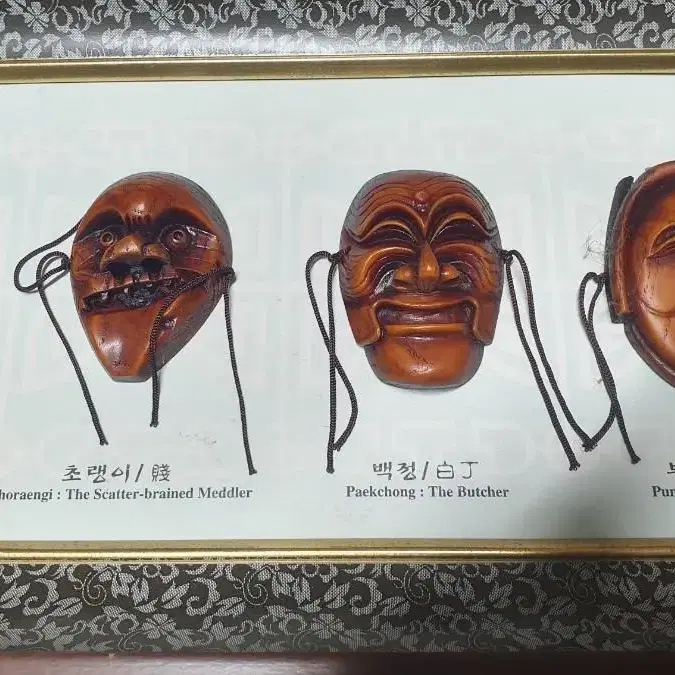 초랭이/賤
horaengi : The Scatter-brained Meddler
백정/白丁
Paekchong : The Butcher